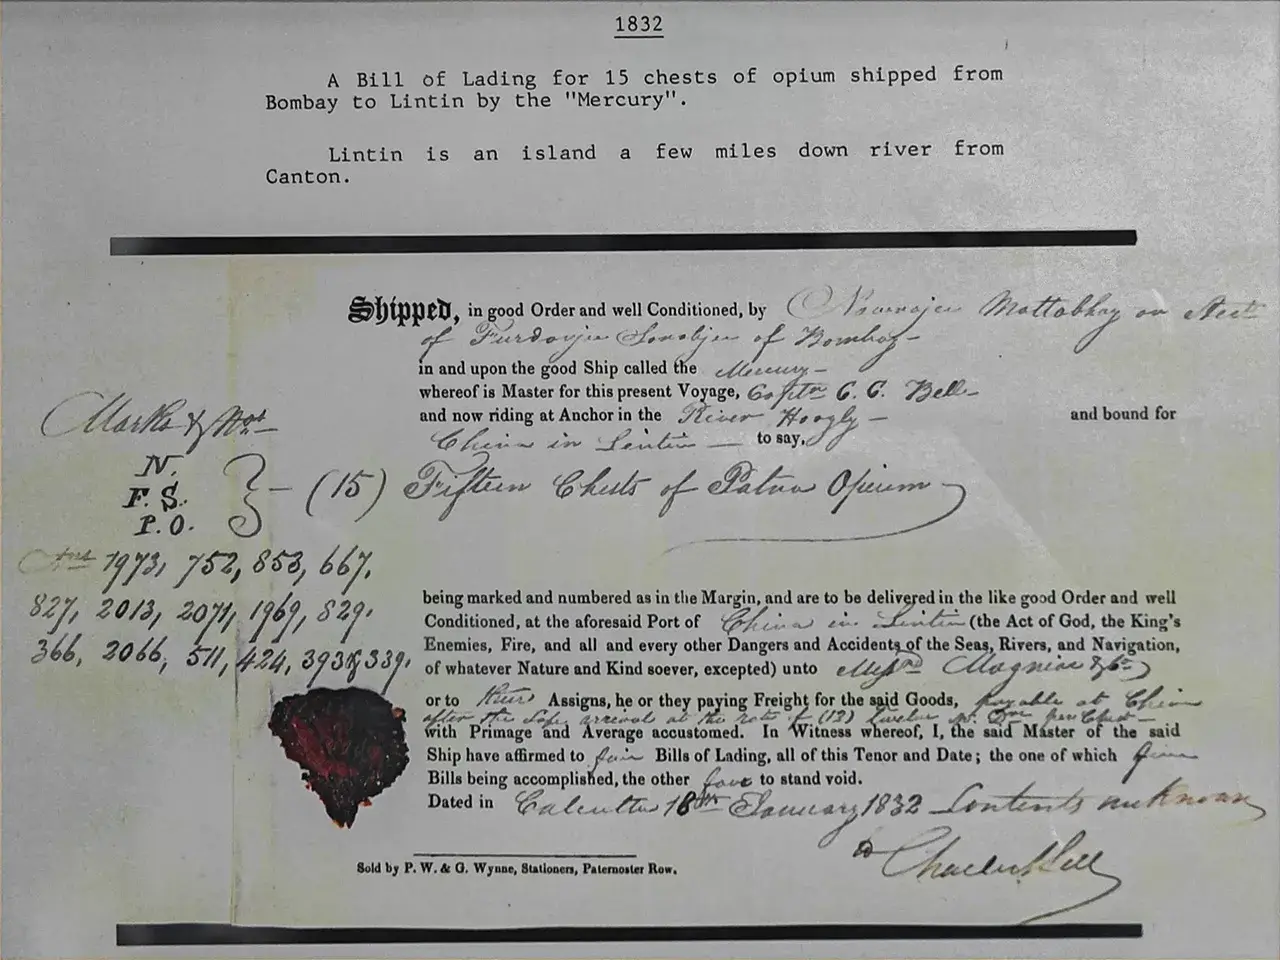 1832
A Bill of Lading for 15 chests of opium shipped from
Bombay to Lintin by the "Mercury".
Lintin is an island a few miles down river from
Canton.
Shipped, in good Order and well Conditioned, by Nowrojee Mottabhoy on Acct
of Furdonjee Sorabjee of Bombay
in and upon the good Ship called the Mercury
whereof is Master for this present Voyage, Captn C. C. Bell
and now riding at Anchor in the River Hoogly and bound for
China in Lintin to say,
Marks & Nos
N.
F. S.
P. O.
(15) Fifteen Chests of Patna Opium
Nos 1973, 752, 853, 667,
827, 2013, 2071, 1969, 829,
366, 2066, 511, 424, 393 & 339.
being marked and numbered as in the Margin, and are to be delivered in the like good Order and well
Conditioned, at the aforesaid Port of China in Lintin (the Act of God, the King's
Enemies, Fire, and all and every other Dangers and Accidents of the Seas, Rivers, and Navigation,
of whatever Nature and Kind soever, excepted) unto Messrs Magniac & Co
or to their Assigns, he or they paying Freight for the said Goods, payable at China
after the safe arrival at the rate of (12) twelve per Chest
with Primage and Average accustomed. In Witness whereof, I, the said Master of the said
Ship have affirmed to Bills of Lading, all of this Tenor and Date; the one of which
Bills being accomplished, the other to stand void.
Dated in Calcutta 18th January 1832 Contents unknown
Charles Bell
Sold by P. W. & G. Wynne, Stationers, Paternoster Row.